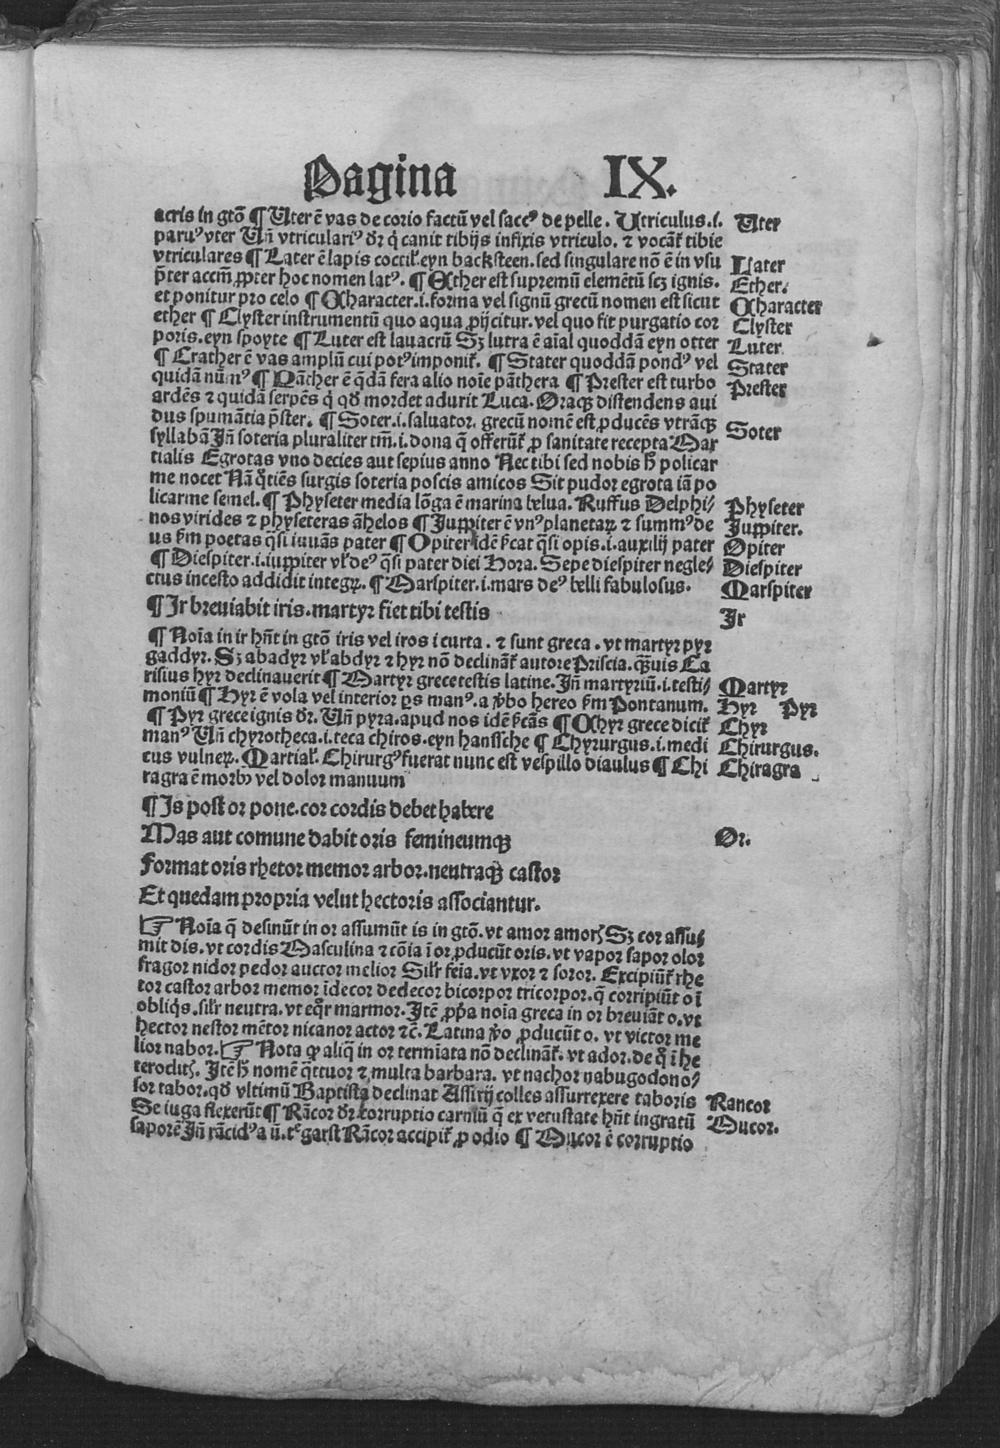 Pagina IX.
acris in gtō ¶ Uter ē vas de corio factū vel saccꝰ de pelle. Utriculus .i. Uter
paruꝰ vter Uñ vtriculariꝰ dr̄ q̇ canit tibijs infixis vtriculo. ⁊ vocāt̉ tibie
vtriculares ¶ Later ē lapis coctil̉. eyn backsteen. sed singulare nō ē in vsu Later
p̄ter accm̄. ꝓpter hoc nomen latꝰ. ¶ Ether est supremū elemētū scꝫ ignis. Ether.
et ponitur pro celo ¶ Character .i. forma vel signū grecū nomen est sicut Character
ether ¶ Clyster instrumentū quo aqua ꝓijcitur. vel quo fit purgatio cor Clyster
poris. eyn spoyte ¶ Luter est lauacrū Sꝫ lutra ē aīal quoddā eyn otter Luter
¶ Crather ē vas amplū cui potꝰ imponit̉. ¶ Stater quoddā pondꝰ vel Stater
quidā nūmꝰ ¶ Pāther ē q̄dā fera alio noīe pāthera ¶ Prester est turbo Prester
ardēs ⁊ quidā serpēs q̇ qd̄ mordet adurit Luca. Oraqꝫ distendens aui
dus spumātia p̄ster. ¶ Soter .i. saluator. grecū nomē est ꝓducēs vtrāqꝫ Soter
syllabā Iñ soteria pluraliter tm̄ .i. dona q̄ offerūt̉ ꝓ sanitate recepta Mar
tialis Egrotas vno decies aut sepius anno Nec tibi sed nobis h̄ policar
me nocet Nā q̊tiēs surgis soteria poscis amicos Sit pudor egrota iā po
licarme semel. ¶ Physeter media lōga ē marina belua. Ruffus Delphi⸗ Physeter
nos virides ⁊ physeteras āhelos ¶ Iuppiter ē vnꝰ planetaꝝ ⁊ summꝰ de Iuppiter.
us ẜm poetas q̄si iuuās pater ¶ Opiter idē ẜcat q̄si opis .i. auxilij pater Opiter
¶ Diespiter .i. iuppiter vl̉ deꝰ q̄si pater diei Hora. Sepe diespiter negle⸗ Diespiter
ctus incesto addidit integꝝ. ¶ Marspiter .i. mars deꝰ belli fabulosus. Marspiter
¶ Ir breuiabit iris. martyr fiet tibi testis Ir
¶ Noīa in ir hn̄t in gtō iris vel iros i curta. ⁊ sunt greca. vt martyr pyr
gaddyr. Sꝫ abadyr vl̉ abdyr ⁊ hyr nō declināt̉ autore Priscia. q̄uis Ca
risius hyr declinauerit ¶ Martyr grece testis latine. Iñ martyriū .i. testi⸗ Martyr
moniū ¶ Hyr ē vola vel interior ꝑs manꝰ. a v̉bo hereo ẜm Pontanum. Hyr Pyr
¶ Pyr grece ignis dr̄. Uñ pyra. apud nos idē ẜcās ¶ Chyr grece dicit̉ Chyr
manꝰ Uñ chyrotheca .i. teca chiros. eyn hanssche ¶ Chyrurgus .i. medi Chirurgus.
cus vulneꝝ. Martial̉. Chirurgꝰ fuerat nunc est vespillo diaulus ¶ Chi Chiragra
ragra ē morbꝰ vel dolor manuum
¶ Is post or pone. cor cordis debet habere
Mas aut comune dabit oris femineumqꝫ Or.
Format oris rhetor memor arbor. neutraqꝫ castor
Et quedam propria velut hectoris associantur.
☞ Noīa q̄ desinūt in or assumūt is in gtō. vt amor amorꝭ Sꝫ cor assu⸗
mit dis. vt cordis Masculina ⁊ cōia ī or ꝓducūt oris. vt vapor sapor olor
fragor nidor pedor auctor melior Sil̉r feīa. vt vxor ⁊ soror. Excipiūt̉ rhe
tor castor arbor memor īdecor dedecor bicorpor tricorpor. q̄ corripiūt o ī
obliq̇s. sil̉r neutra. vt eq̊r marmor. Itē ꝓpa noīa greca in or breuiāt o. vt
hector nestor mētor nicanor actor ⁊c̄. Latina v̉o ꝓducūt o. vt victor me
lior nabor. ☞ Nota ꝙ aliq̄ in or termīata nō declināt̉. vt ador. de q̊ ī he
teroclitꝭ. Itē h̄ nomē q̄ttuor ⁊ multa barbara. vt nachor nabugodono⸗
sor tabor. qd̄ vltimū Baptista declinat Assirij colles assurrexere taboris Rancor
Se iuga flexerūt ¶ Rācor dr̄ corruptio carniū q̄ ex vetustate hn̄t ingratū Mucor.
saporē Iñ rācidꝰ a ū. tꝰ garst Rācor accipit̉ ꝓ odio ¶ Mucor ē corruptio